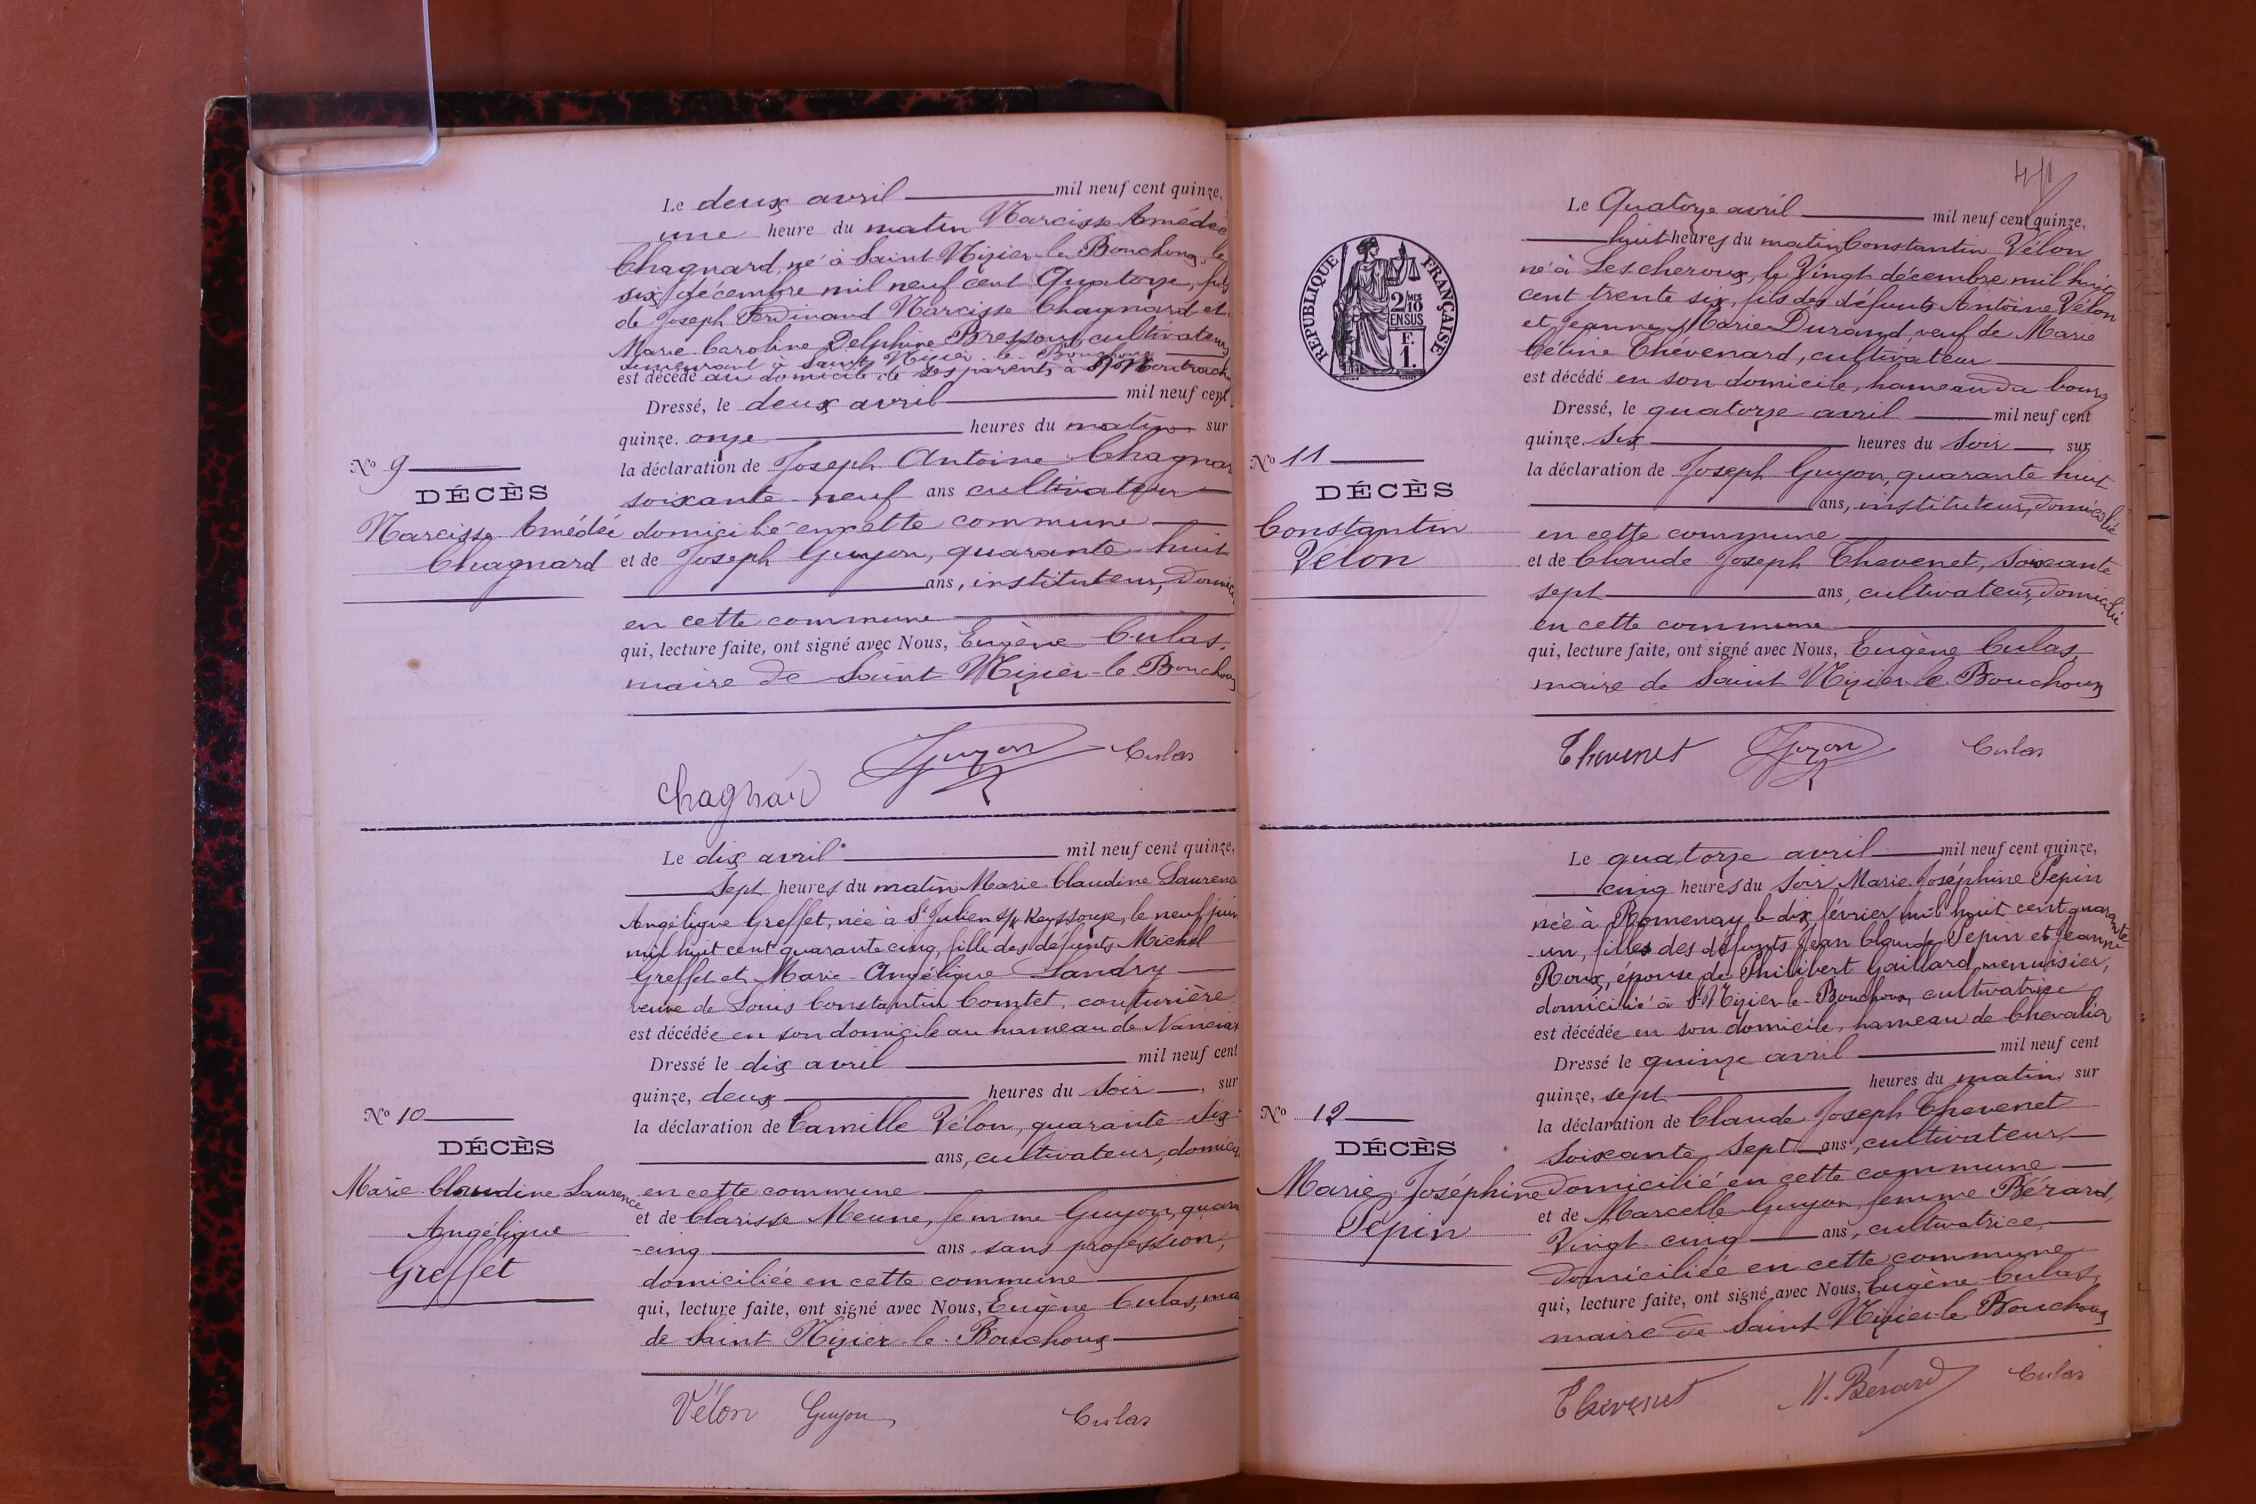 Le deux avril mil neuf cent quinze,
une heure du matin Narcisse Amédée
Chagnard, né à Saint Nizier-le-Bouchoux, le
six décembre mil neuf cent Quatorze, fils
de Joseph Ferdinand Narcisse Chagnard et
Marie Caroline Delphine Bressoux, cultivateurs
demeurant à Saint Nizier-le-Bouchoux
est décédé au domicile de ses parents à
Dressé, le deux avril mil neuf cent
quinze. onze heures du matin sur
No 9
DÉCÈS
Narcisse Amédée
Chagnard
la déclaration de Joseph Antoine Chagnar
soixante-neuf ans cultivateur
domicilié en cette commune
et de Joseph Guyon, quarante-huit
ans, instituteur, domici
en cette commune
qui, lecture faite, ont signé avec Nous, Eugène Culas,
maire de Saint Nizier-le-Bouchoux
chagnard Guyon Culas
Le dix avril mil neuf cent quinze,
Sept heures du matin Marie Claudine Laurence
Angélique Greffet, née à St Julien s/ Reyssouze, le neuf juin
mil huit cent quarante cinq, fille des défunts Michel
Greffet et Marie-Angélique Landry
veuve de Louis Constantin Comtet, couturière
est décédée en son domicile au hameau de
Dressé le dix avril mil neuf cent
quinze, deux heures du Soir, sur
No 10
DÉCÈS
Marie Claudine Laurence
Angélique
Greffet
la déclaration de Camille Vélon, quarante-six
ans, cultivateur, domici
en cette commune
et de Clarisse Meune, femme Guyon, quaran
-cinq ans, sans profession,
domiciliée en cette commune
qui, lecture faite, ont signé avec Nous, Eugène Culas, ma
de Saint Nizier-le-Bouchoux
Vélon Guyon Culas
REPUBLIQUE FRANÇAISE
2/10 MES
EN SUS
F.
1.
Le Quatorze avril mil neuf cent quinze,
huit heures du matin Constantin Vélon
né à Lescheroux, le Vingt décembre mil huit
cent trente six, fils des défunts Antoine Vélon
et Jeanne Marie Durand, veuf de Marie
Céline Thévenard, cultivateur
est décédé en son domicile, hameau du bourg
Dressé, le quatorze avril mil neuf cent
quinze. Six heures du Soir, sur
No 11
DÉCÈS
Constantin
Vélon
la déclaration de Joseph Guyon, quarante huit
ans, instituteur, domicilié
en cette commune
et de Claude Joseph Thevenet, Soixante
sept ans, cultivateur, domicilié
en cette commune
qui, lecture faite, ont signé avec Nous, Eugène Culas
maire de Saint Nizier-le-Bouchoux
Thevenet Guyon Culas
Le quatorze avril mil neuf cent quinze,
cinq heures du Soir, Marie Joséphine Pépin
née à Romenay le dix février mil huit cent quarante
-un, filles des défunts Jean Claude Pépin et Jeanne
Roux, épouse de Philibert Gaillard menuisier,
domicilié à St Nizier-le-Bouchoux, cultivatrice
est décédée en son domicile, hameau de
Dressé le quinze avril mil neuf cent
quinze, sept heures du matin sur
No 12
DÉCÈS
Marie Joséphine
Pépin
la déclaration de Claude Joseph Thevenet
Soixante Sept ans, cultivateur,
domicilié en cette commune
et de Marcelle Guyon, femme Bérard,
Vingt-cinq ans, cultivatrice,
domiciliée en cette commune
qui, lecture faite, ont signé avec Nous, Eugène Culas,
maire de Saint Nizier-le-Bouchoux
Thevenet M. Bérard Culas